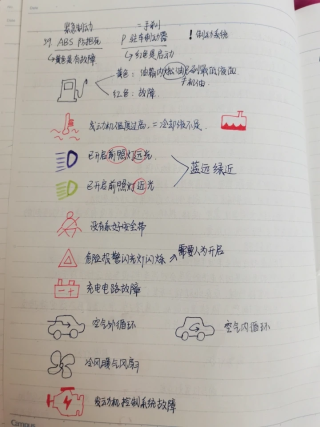 紧急制动 二手刹
39. ABS 防抱死 P 驻车制动器 ! 制动系统
↳黄色是有故障 ↳红色是启动
黄色：油箱内燃油已到最低液面
红色：故障
发动机温度过高，= 冷却液不足
已开启前照灯远光
蓝远 绿近
已开启前照灯近光
没有系好安全带
危险报警闪光灯闪烁 → 需要人为开启
充电电路故障
空气外循环 空气内循环
冷风暖气风扇
发动机控制系统故障
Campus